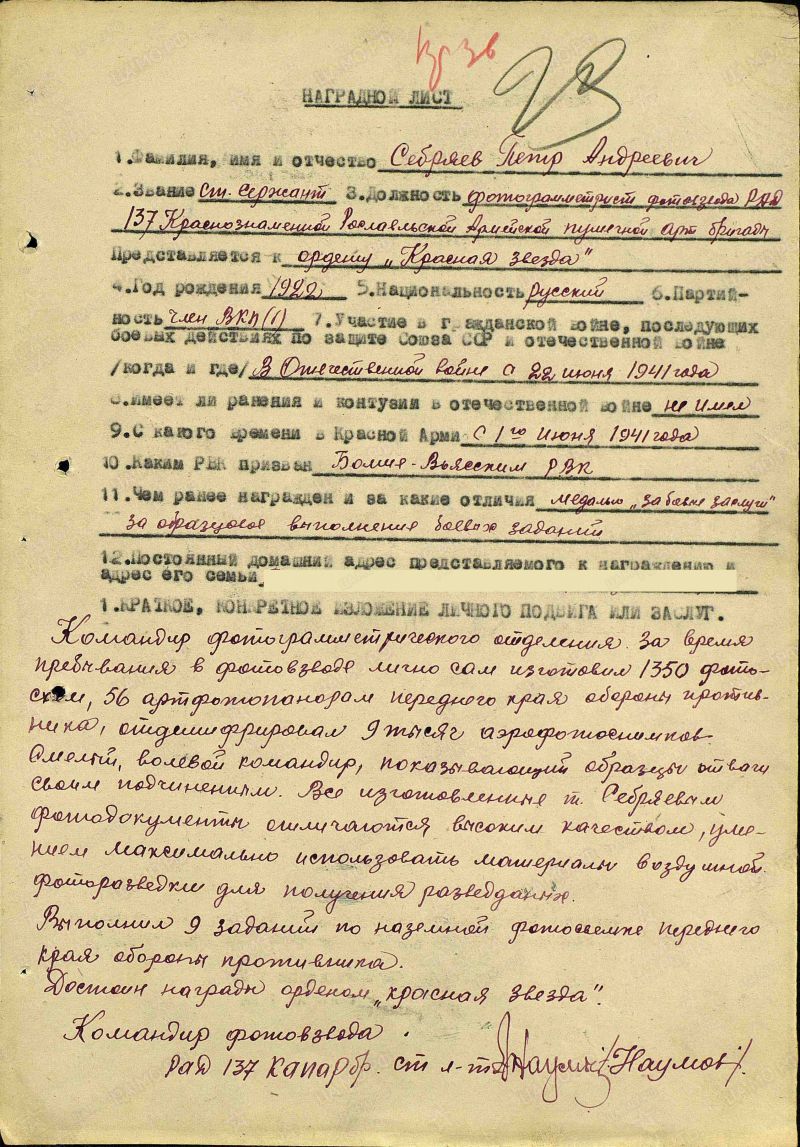 23
НАГРАДНОЙ ЛИСТ
1.Фамилия, имя и отчество Себряев Петр Андреевич
2.Звание Ст. Сержант 3.Должность фотограмметрист фотовзвода РАД
137 Краснознаменной Рославльской Армейской пушечной арт бригады
Представляется к ордену „Красная звезда"
4.Год рождения 1922 5.Национальность Русский 6.Партий-
ность член ВКП(б) 7.Участие в гражданской войне, последующих
боевых действиях по защите Союза ССР и отечественной войне
/когда и где/ В Отечественной войне с 22 июня 1941 года
8.Имеет ли ранения и контузии в отечественной войне не имел
9.С какого времени в Красной Арми С 1го Июня 1941 года
10.Каким РВК призван Больше-Вьясским РВК
11.Чем ранее награжден и за какие отличия медалью „за боевые заслуги"
за образцовое выполнение боевых заданий
12.Постоянный домашний адрес представляемого к награждению и
адрес его семьи
1.КРАТКОЕ, КОНКРЕТНОЕ ИЗЛОЖЕНИЕ ЛИЧНОГО ПОДВИГА ИЛИ ЗАСЛУГ.
Командир фотограмметрического отделения. За время
пребывания в фотовзводе лично сам изготовил 1350 фото-
схем, 56 артфотопанорам переднего края обороны против-
ника, отдешифрировал 9 тысяч аэрофотоснимков.
Смелый, волевой командир, показывающий образцы отваги
своим подчиненным. Все изготовленные т. Себряевым
фотодокументы отличаются высоким качеством, уме-
нием максимально использовать материалы воздушной
фоторазведки для получения разведданых.
Выполнил 9 заданий по наземной фотосъемке переднего
края обороны противника.
Достоин награды орденом „красная звезда".
Командир фотовзвода
РАД 137 КАПАРбр. ст л-т Наумов /Наумов/.